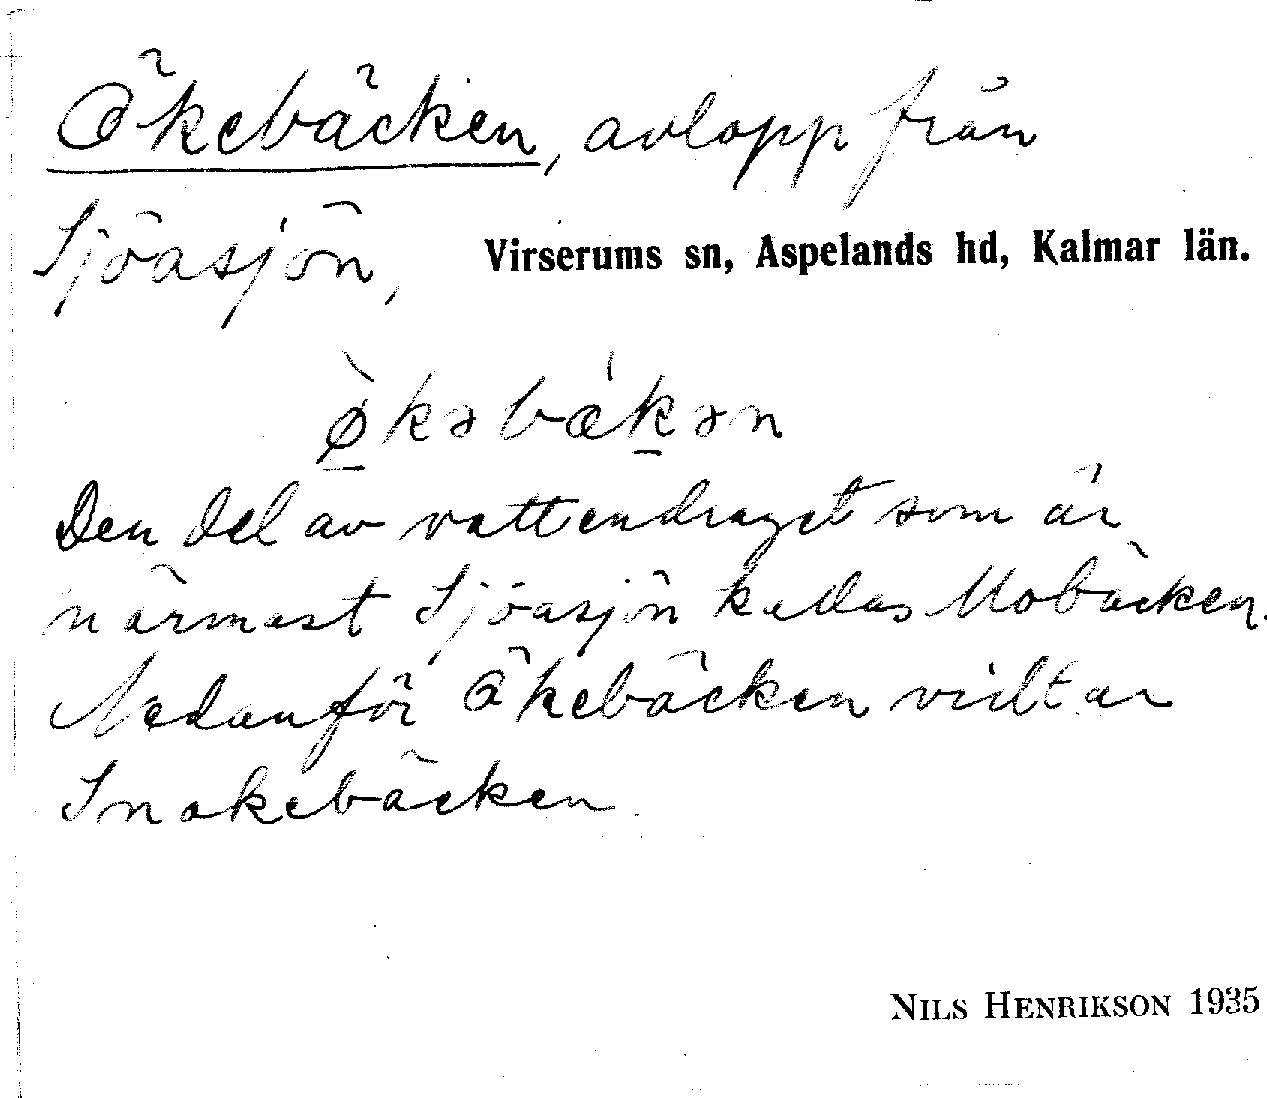 Ökebäcken, avlopp från
Sjöasjön, Virserums sn, Aspelands hd, Kalmar län.
ø̀kəbæ̍kən
Den del av vattendraget som är
närmast Sjöasjön kallas Mobäcken.
Nedanför Ökebäcken vidtar
Snokebäcken.
NILS HENRIKSON 1935